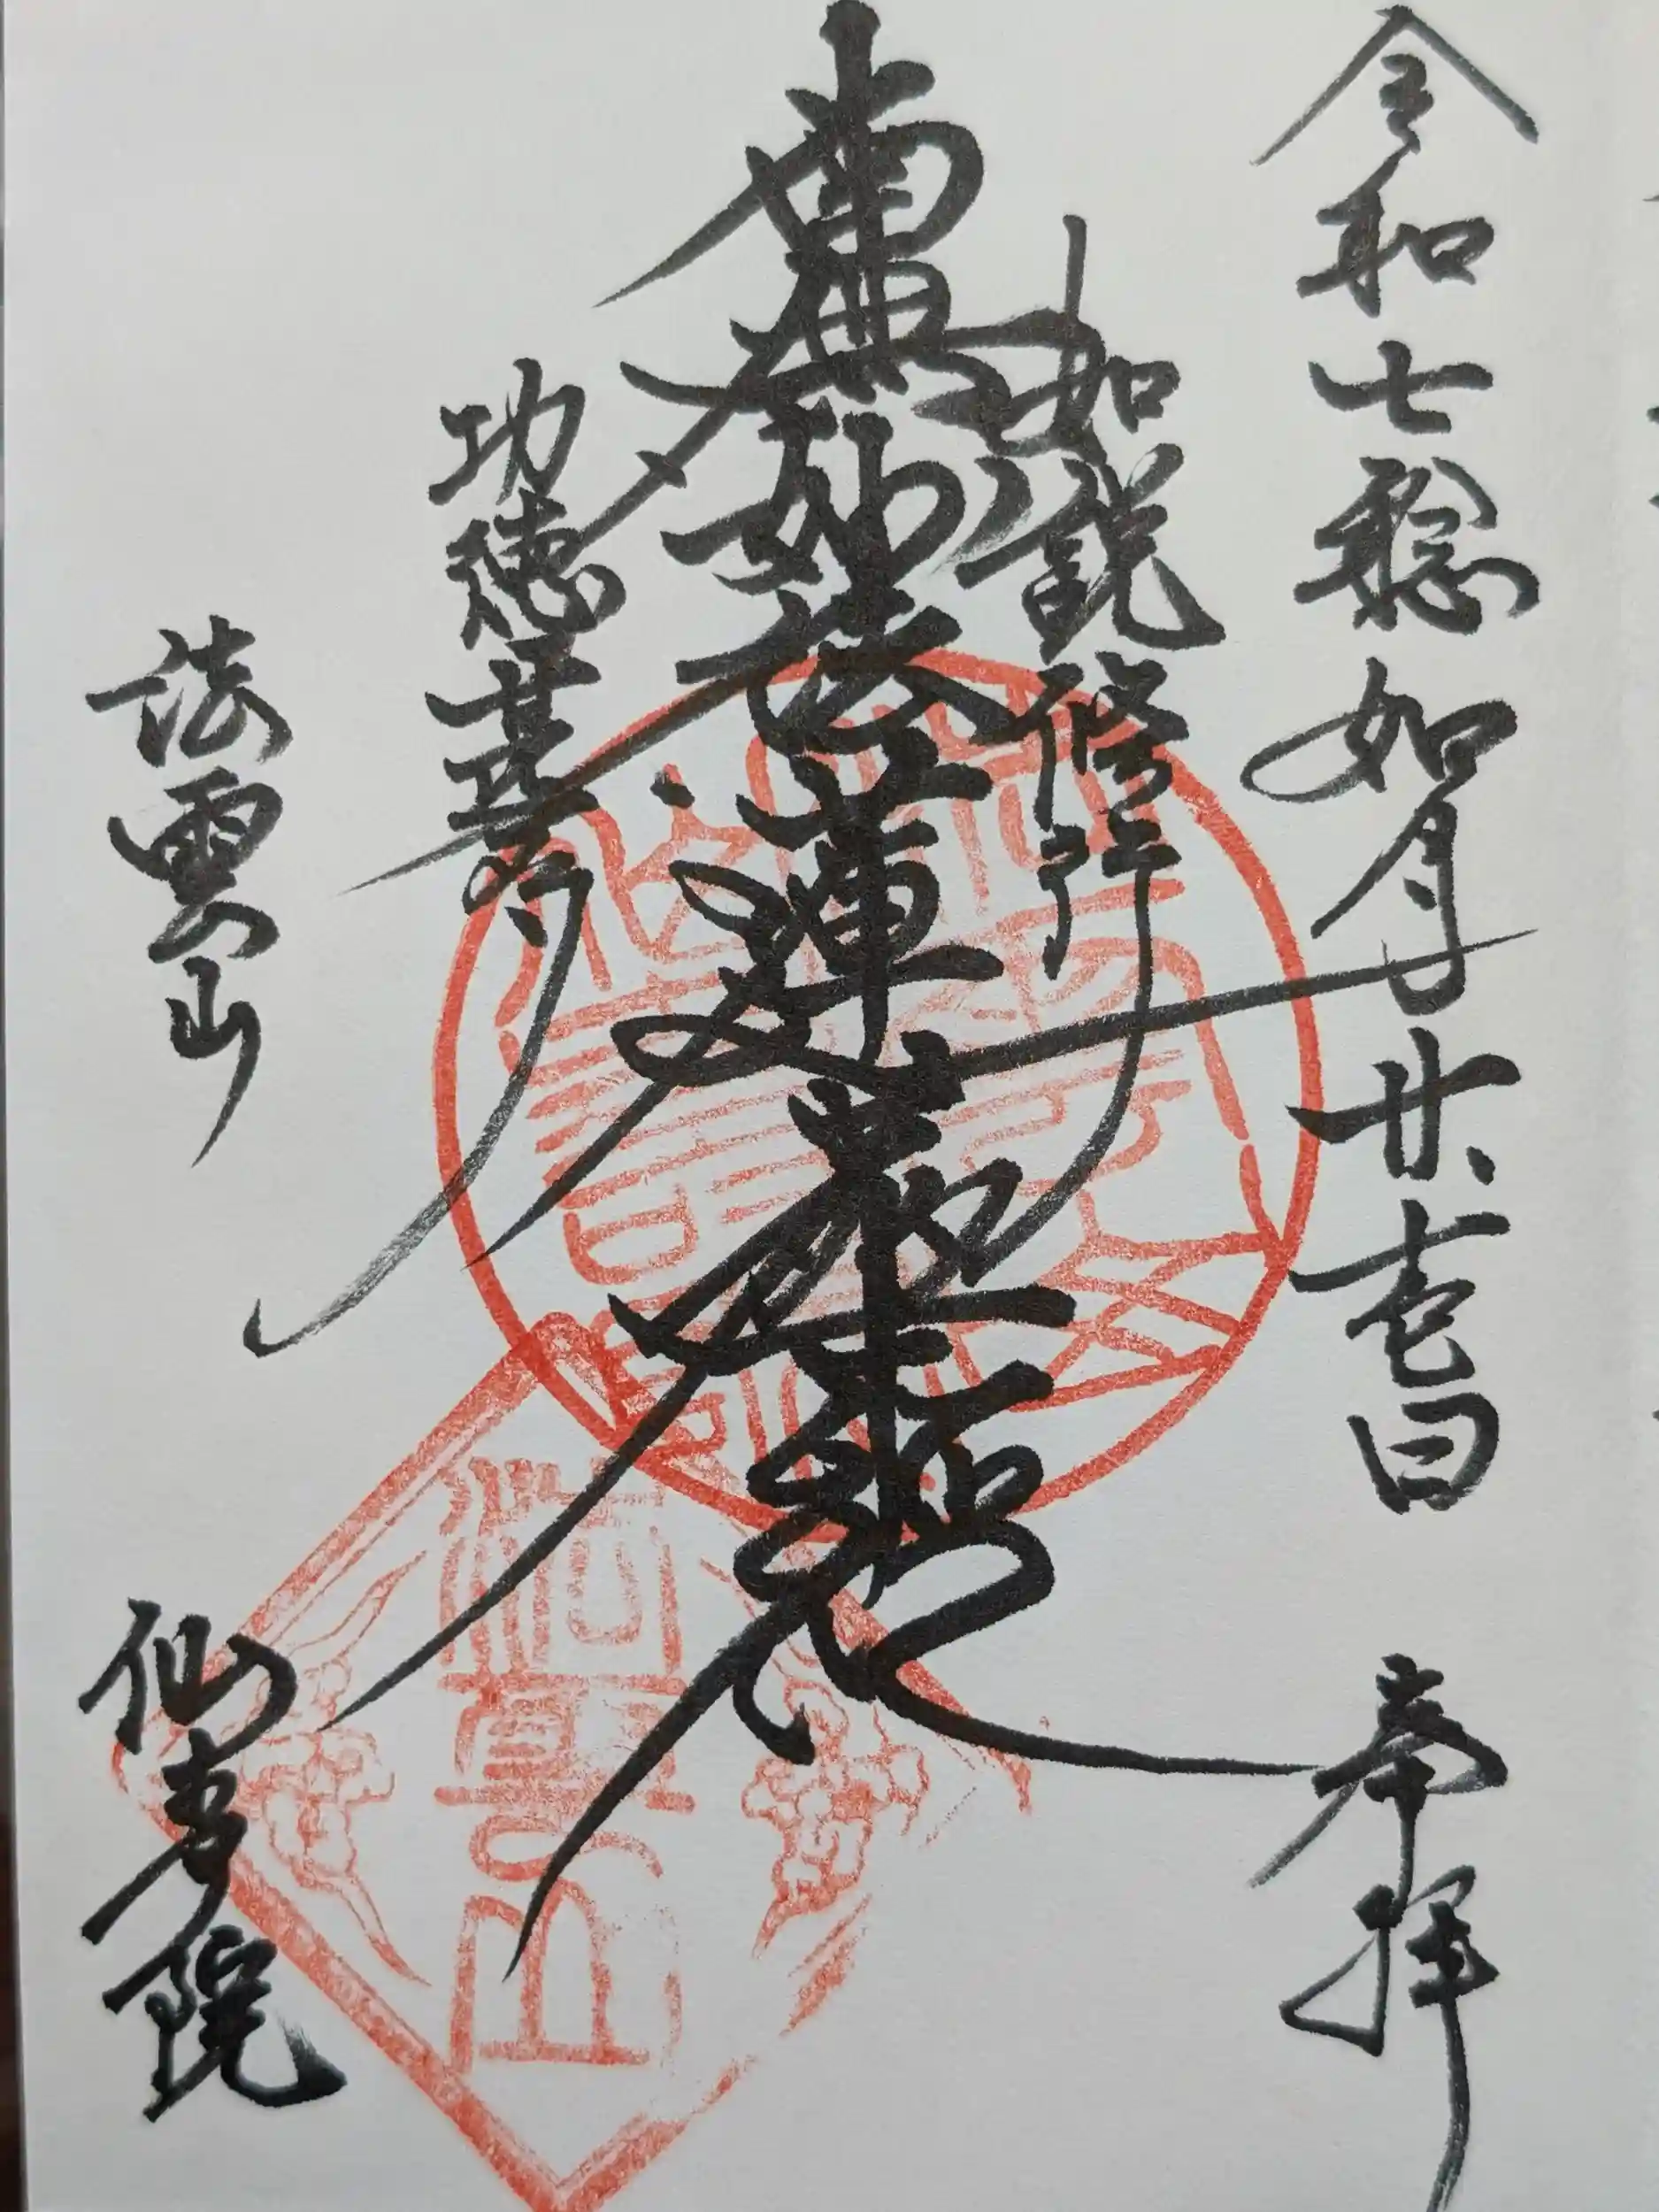 令和七稔如月廿壱日 奉拝
如説修行
南無妙法蓮華経
功徳甚多
法雲山 仙寿院